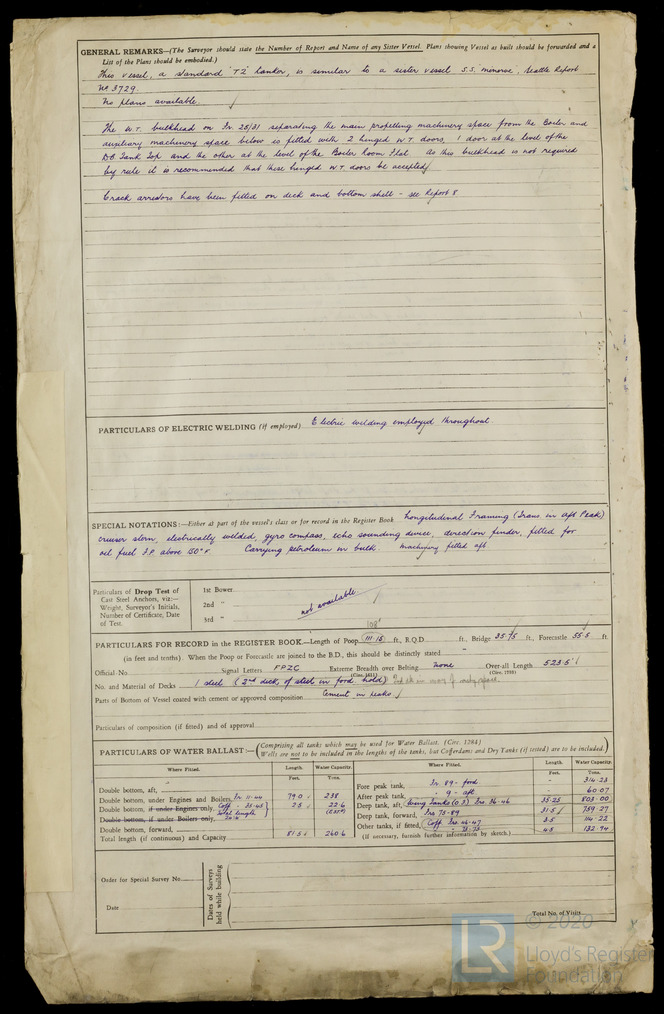 GENERAL REMARKS—(The Surveyor should state the Number of Report and Name of any Sister Vessel. Plans showing Vessel as built should be forwarded and a
List of the Plans should be embodied.)
This vessel, a standard 'T2' tanker, is similar to a sister vessel S.S. , Seattle Report
No 3729.
No plans available.
The W.T. bulkhead on Fr. 25/31 separating the main propelling machinery space from the Boiler and
auxiliary machinery space below is fitted with 2 hinged W.T. doors, 1 door at the level of the
D.B. Tank Top and the other at the level of the Boiler Room Flat. As this bulkhead is not required
by rule it is recommended that these hinged W.T. doors be accepted
Crack arrestors have been fitted on deck and bottom shell - see Report 8
PARTICULARS OF ELECTRIC WELDING (if employed) Electric welding employed throughout.
SPECIAL NOTATIONS:—Either at part of the vessel's class or for record in the Register Book Longitudinal Framing (Trans. in Aft Peak)
cruiser stern, electrically welded, gyro compass, echo sounding device, direction finder, fitted for
oil fuel F.P. above 150°F. Carrying petroleum in bulk. Machinery fitted aft
Particulars of Drop Test of
Cast Steel Anchors, viz:—
Weight, Surveyor's Initials,
Number of Certificate, Date
of Test.
1st Bower
2nd "
3rd "
not available.
108'
PARTICULARS FOR RECORD in the REGISTER BOOK.—Length of Poop 111.15 ft., R.Q.D. ft., Bridge 35.75 ft., Forecastle 55.5 ft.
(in feet and tenths). When the Poop or Forecastle are joined to the B.D., this should be distinctly stated
Official No. Signal Letters FPZC Extreme Breadth over Belting None Over-all Length 523.5
(Circ. 1611) (Circ. 1703)
No. and Material of Decks 1 steel (2nd deck, of steel in ford hold)
Parts of Bottom of Vessel coated with cement or approved composition Cement in peaks
Particulars of composition (if fitted) and of approval
PARTICULARS OF WATER BALLAST:—(Comprising all tanks which may be used for Water Ballast. (Circ. 1284)
Wells are not to be included in the lengths of the tanks, but Cofferdams and Dry Tanks (if tested) are to be included.)
Where Fitted. Length. Water Capacity. Where Fitted. Length. Water Capacity.
Feet. Tons. Feet. Tons.
Double bottom, aft,
Double bottom, under Engines and Boilers, Fr 11-44 79.0 238
Double bottom, if under Engines only, Coff. 2.5 22.6
Double bottom, if under Boilers only, total length
Double bottom, forward,
Total length (if continuous) and Capacity 81.5 260.6
Fore peak tank, Fr 89 - ford - 314.23
After peak tank, " 9 - aft - 60.07
Deep tank, aft, Wing Tanks (P.S) Frs 36-46 35.25 803.00
Deep tank, forward, Frs 75-89 31.5 759.27
Other tanks, if fitted, Coff. Frs 46-47 3.5 114.22
" 4.5 132.94
(If necessary, furnish further information by sketch.)
Order for Special Survey No.
Date
Dates of Surveys
held while building
Total No. of Visits
LR
© 2020
Lloyd's Register
Foundation